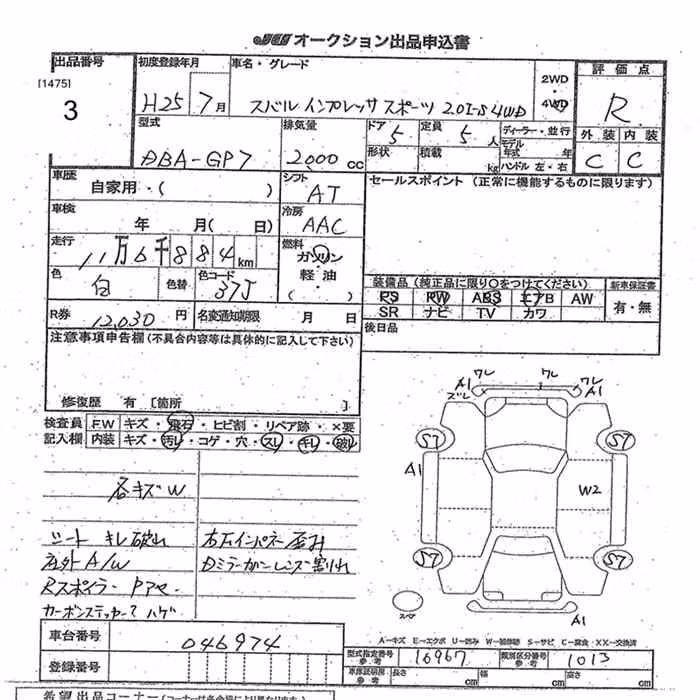 JU オークション出品申込書
出品番号
[1475]
3
初度登録年月
H25 7月
車名・グレード
スバル インプレッサ スポーツ 2.0I-S 4WD
2WD
4WD
評価点
R
外装 内装
C C
型式
DBA-GP7
排気量
2000 cc
ドア
5
定員
5人
形状
積載
kg
ディーラー・並行
モデル年式 年
ハンドル 左・右
車歴
自家用・( )
シフト
AT
セールスポイント (正常に機能するものに限ります)
車検
年 月( 日)
冷房
AAC
走行
11万6千884km
燃料
ガソリン
軽油
( )
色
白
色替
色コード
37J
装備品(純正品に限り○をつけてください)
PS PW ABS エアB AW
SR ナビ TV カワ
新車保証書
有・無
R券
12,030円
名変通知期限 月 日
後日品
注意事項申告欄(不具合内容等は具体的に記入して下さい)
修復歴 有 [箇所 ]
検査員記入欄
FW キズ・飛石・ヒビ割・リペア跡・×要
内装 キズ・汚レ・コゲ・穴・スレ・キレ・破レ
各キズW
シート キレ破れ
内外A/W
Rスポイラー Pアセ
カーボンステッカー? ハゲ
右右インパネー歪み
Dミラーガンレンズ割れ
ワレ ワレ ワレ
A1 A1
ズレ
S7 S7
A1
W2
S7 S7
A1
スペア
A-キズ E-エクボ U-凹み W-補修跡 S-サビ C-腐食 ・XX-交換済
車台番号
046974
型式指定番号
参考
16967
類別区分番号
参考
1013
登録番号
車庫証明用
参考
長さ cm
幅 cm
高さ cm
希望出品コーナー